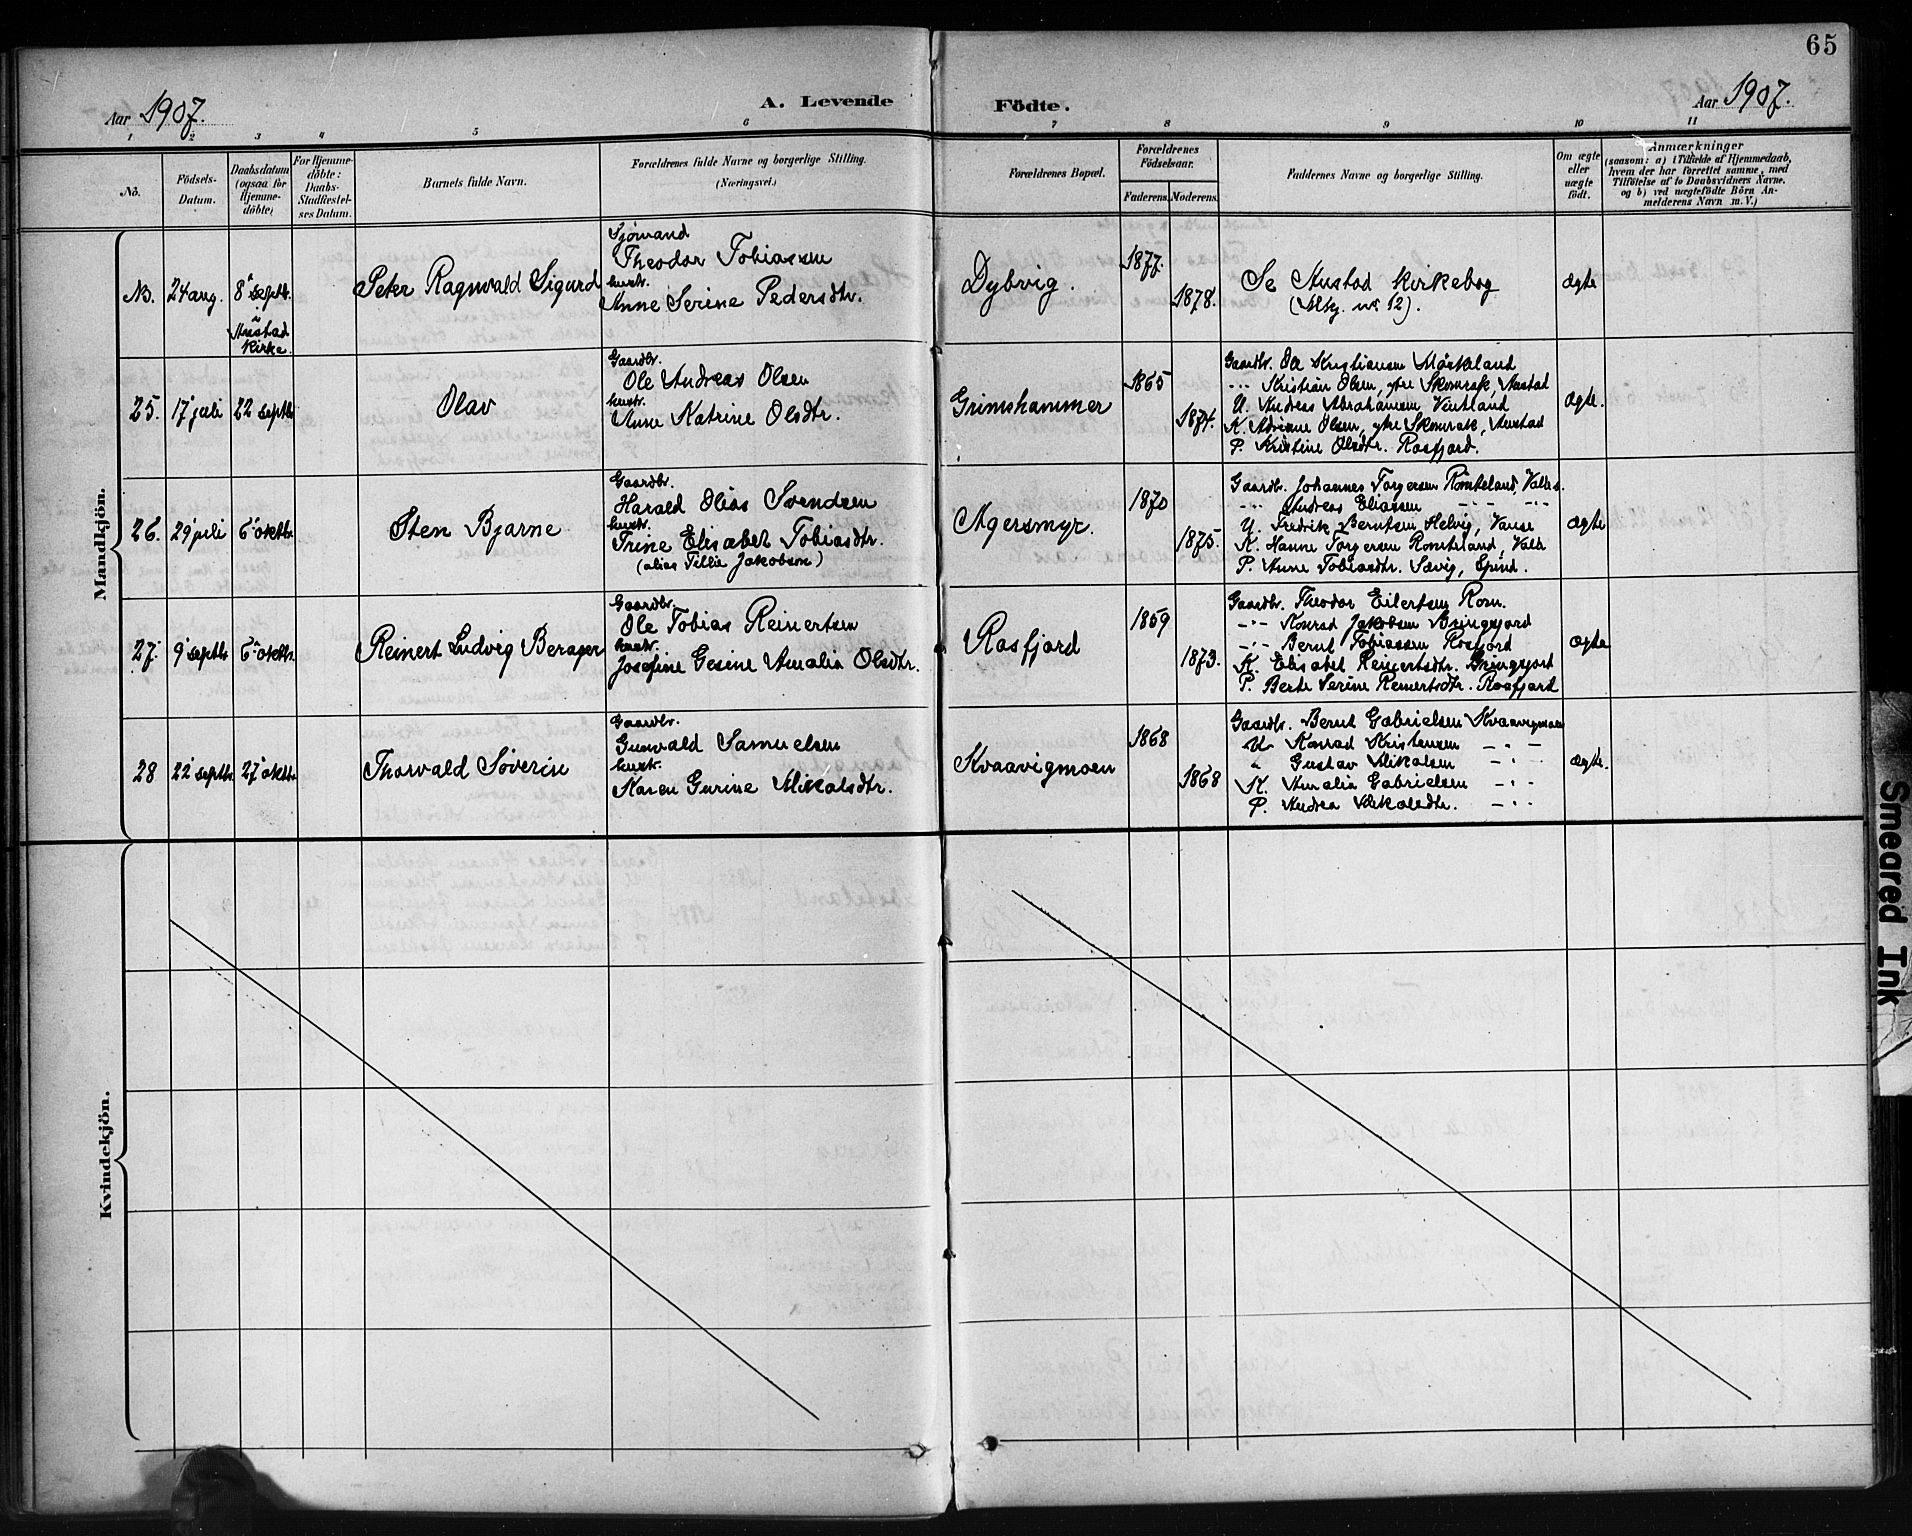 65
Aar 1907.
A. Levende Födte.
Aar 1907.
1 2 3 4 5 6 7 8 9 10 11
No.
Födsels-
Datum.
Daabsdatum
(ogsaa for
Hjemme-
döbte)
For Hjemme-
döbte:
Daabs-
Stadfæstel-
ses Datum.
Barnets fulde Navn.
Forældrenes fulde Navne og borgerlige Stilling.
(Næringsvei.)
Forældrenes Bopæl.
Forældrenes
Födselsaar.
Faderens. Moderens.
Faddernes Navne og borgerlige Stilling.
Om ægte
eller
uægte
födt.
Anmærkninger
(saasom: a) i Tilfælde af Hjemmedaab,
hvem der har forrettet samme, med
Tilföielse af to Daabsvidners Navne,
og b) ved uægtefödte Börn An-
melderens Navn m. V.)
Mandkjön.
NB.
24 aug.
8 septb.
i
Austad
Kirke.
Peter Ragnvald Sigurd
Sjømand
Theodor Tobiassen
hustr.
Anne Serine Pedersdtr.
Dybvig.
1877.
1878.
Se Austad kirkebog
(Mkj. nr 12).
Ægte
25.
17 juli
22 septb
Olav
Gaardbr.
Ole Andreas Olsen
hustr.
Anne Katrine Olsdtr.
Grimshammer
1865
1874.
Gaardbr. Ole Kristiansen Møskeland
-"- Kristian Olsen, ytre Skomrak, Austad
U. Andreas Abrahamsen Vintland
K. Adriane Olsen, ytre Skomrak, Austad
P. Kristine Olsdtr. Rosfjord.
Ægte.
26.
29 juli
6 oktb.
Sten Bjarne
Gaardbr.
Harald Olias Svendsen
hustr.
Trine Elisabet Tobiasdtr.
(alias Tillie Jakobson)
Agersmyr.
1870
1875.
Gaardbr. Johannes Torgersen Rømteland, Valles
-"- Andreas Eliassen -"- -"-
U. Fredrik Berntsen Helvig, Vanse
K. Hanne Torgersen Rømteland, Valle
P. Anne Tobiasdtr. Sævig, Spind.
Ægte
27.
9 septb
6 oktb.
Reinert Ludvig Berager
Gaardbr.
Ole Tobias Reinertsen
hustr.
Josefine Gesine Amalia Olsdtr.
Rosfjord
1859
1873.
Gaardbr. Theodor Eilertsen Rom.
-"- Konrad Jakobsen Bringsjord
-"- Bernt Tobiassen Rosfjord
K. Elisabet Reinertsdtr. Bringsjord
P. Berte Serine Reinertsdtr. Rosfjord
Ægte
28
22 septb.
27 oktb.
Thorvald Soverin
Gaardbr.
Gunvald Samuelsen
hustr.
Karen Gurine Mikalsdtr.
Kvaavigmoen
1868
1868
Gaardbr. Bernt Gabrielsen Kvaavigmoen
U. Konrad Kristensen -"-
" Gustav Mikalsen -"-
K. Amalia Gabrielsen -"-
P. Andrea Mikalsdtr. -"-
Ægte.
Kvindekjön.
Smeared Ink